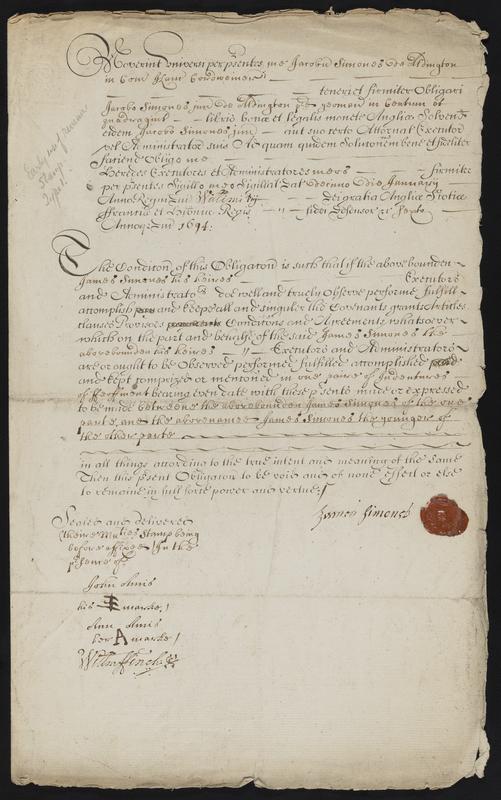 Noverint Universi per presentes me Jacobu Simones de Aldington
in Com Kanc Cordwainer
teneri et firmiter Obligari
Jacobo Simones jun de Aldington pd yeoman in Centum et
quadragint — libris bonæ et legalis monete Angliæ Solvend
eidem Jacobo Simones jun — aut suo certo Attornat Executor
vel Administrator suis Ac quam quidem Solutionem bene et fideliter
faciend Obligo me
Heredes Executores et Administratores meos — firmiter
per presentes Sigillo meo Sigillat Dat decimo die January
Anno Regni Dni Willimi — dei gratia Angliæ Scotiæ
Franciæ et Hiberniæ Regis — fidei Defensor &c Sexto
Annoq Dni 1694:
Early use of Revenue
Stamp
Paper
The Condicon of this Obligacon is such that if the above bounden
James Simones his heires — Executors
and Administrators doe well and truely Observe performe fulfill
accomplish and keepe all and singular the Covenants grants Articles
clauses Provisoes Condicons and Agreements whatsoever
which on the part and behalfe of the said James Simones the
abovebounden his heires — Executors and Administrators
are or ought to be Observed performed fulfilled accomplished
and kept comprized or menconed in one paire of Indentures
of Feoffment bearing even date with these presents made or expressed
to be made betweene the abovebounden James Simones of the one
parte, and the abovenamed James Simones the younger of
the other parte
in all things according to the true intent and meaning of the same
Then this present Obligacon to be voie and of none effect or else
to remaine in full force power and vertue
James Simones
Sealed and delivered
(theire Maties Stamp being
before affixed) In the
presence of
John Amis
his marke
Ann Amis
her A marke
Will Finch